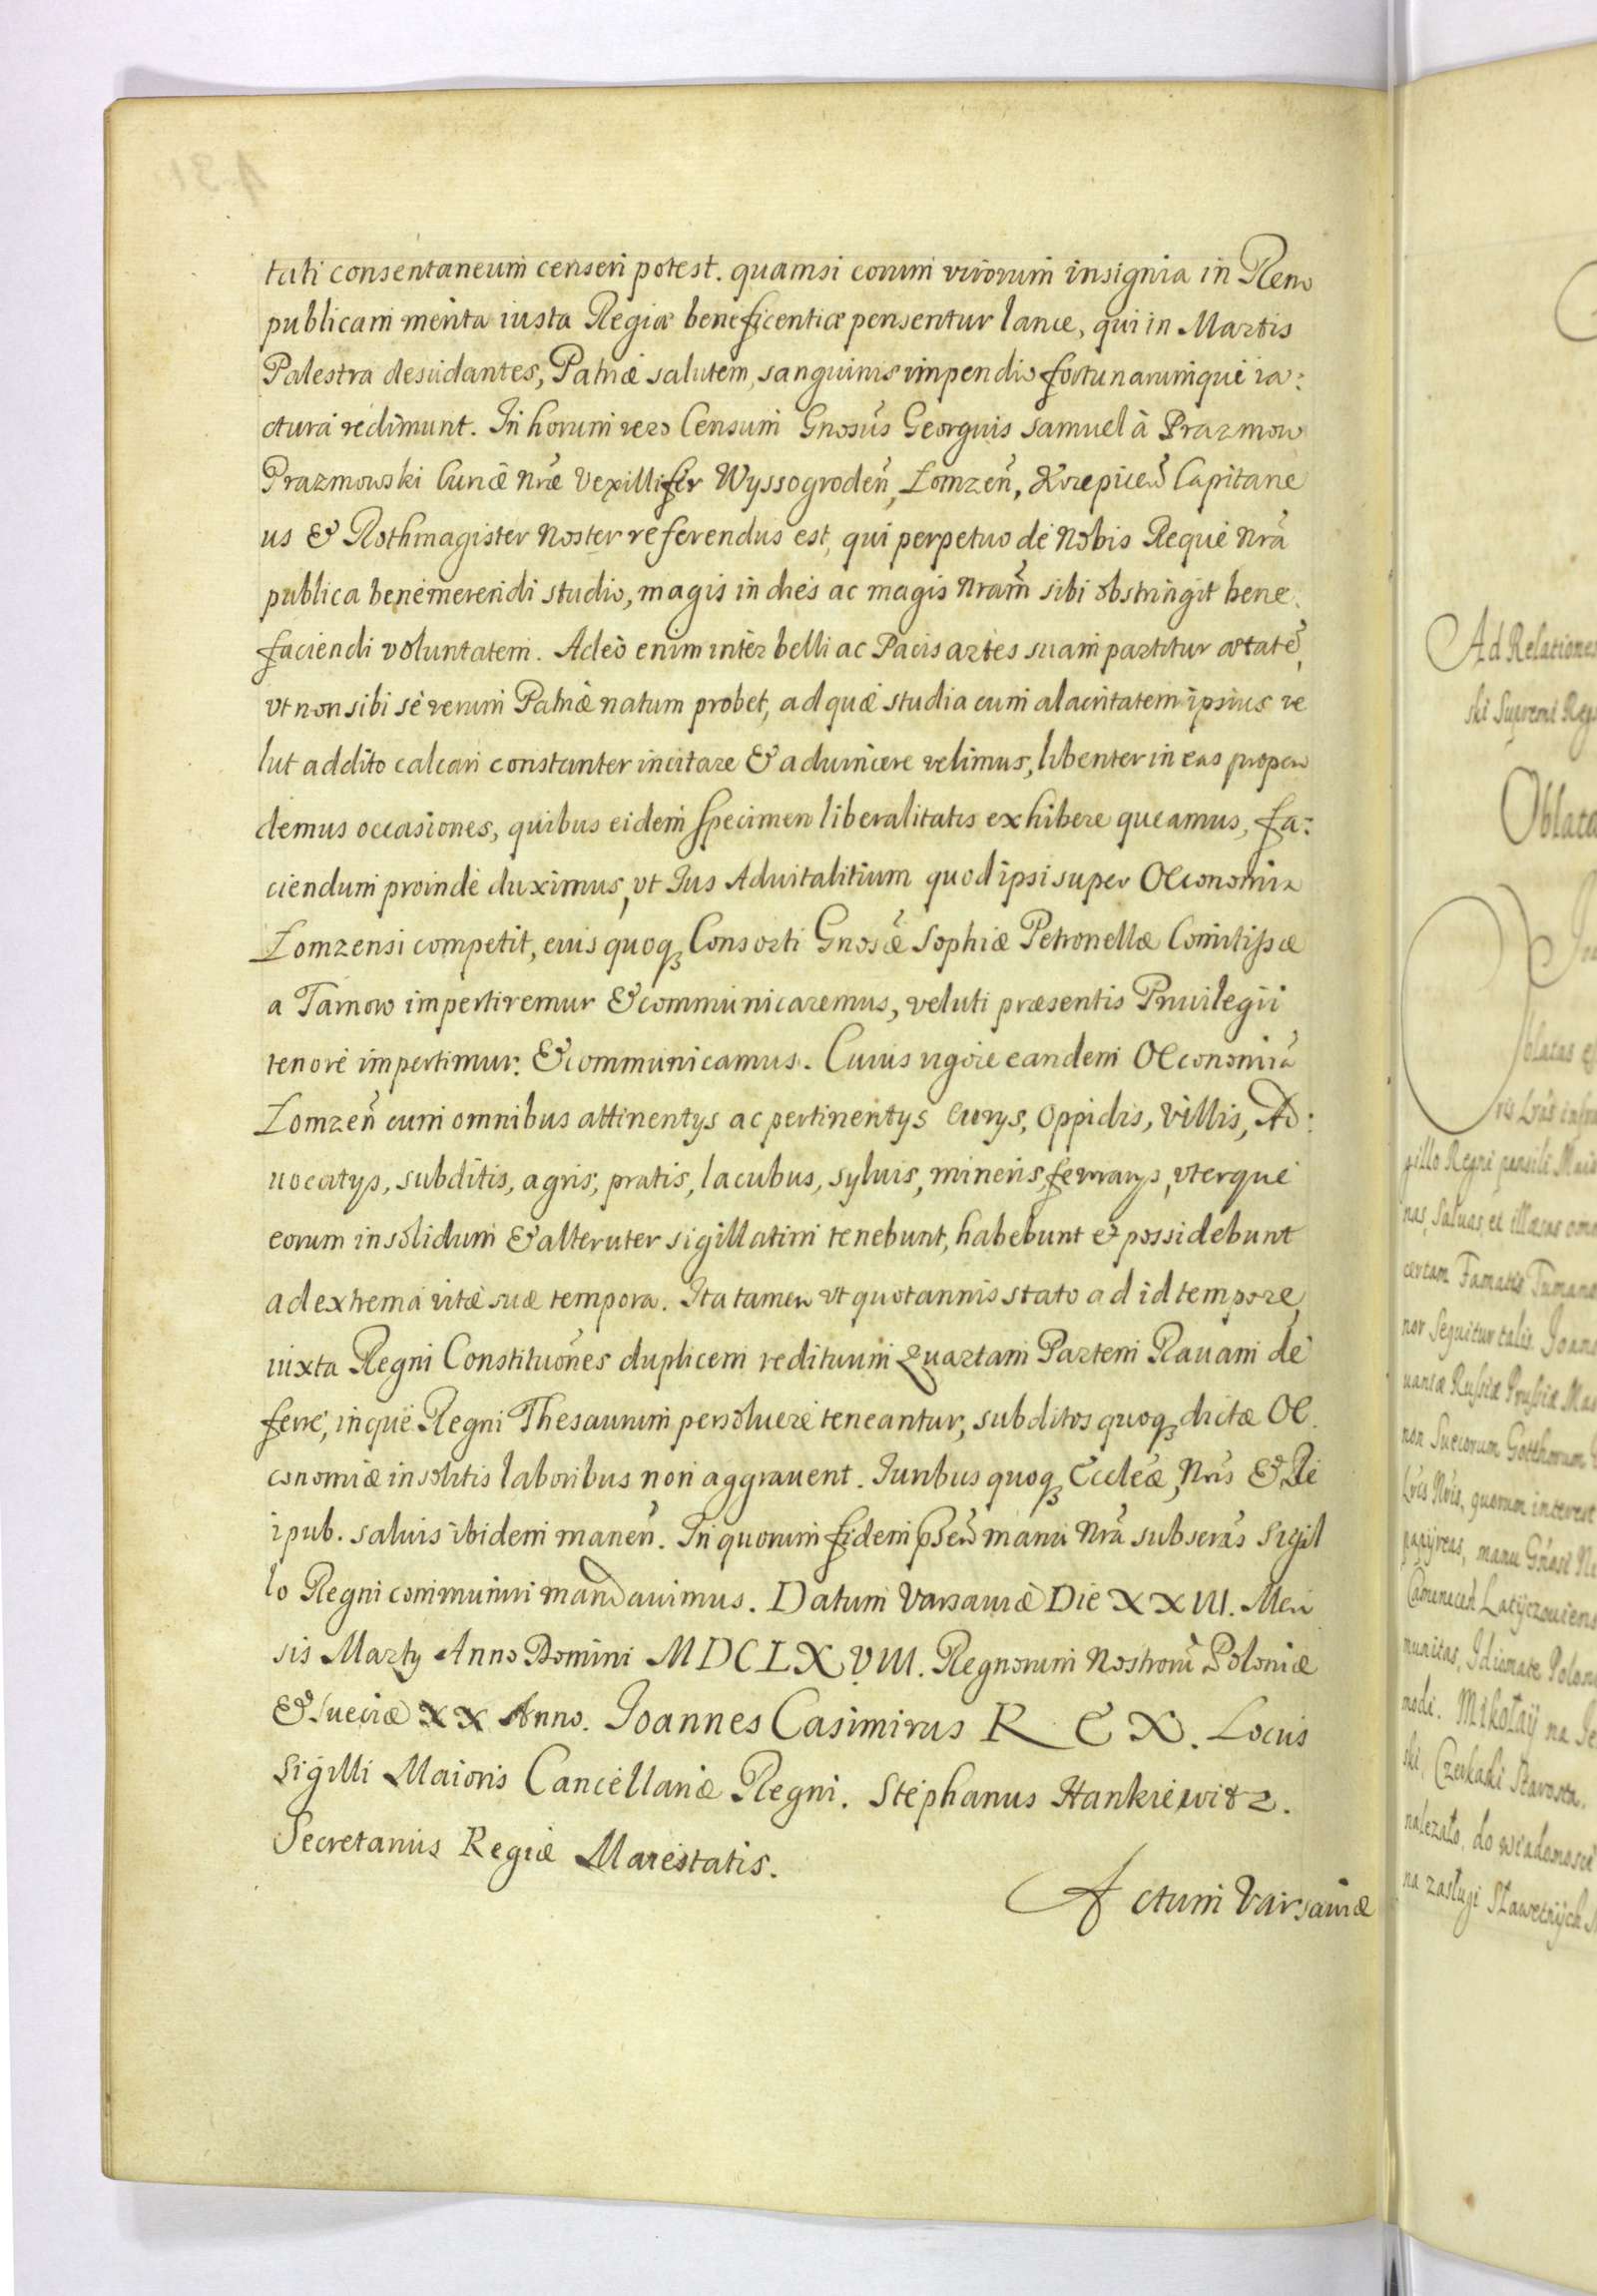 tati consentaneum censeri potest. quamsi eorum virorum insignia in Rem
publicam merita iusta Regiæ beneficentiæ pensentur lance, qui in Martis
Palestra desudantes, Patriæ salutem, sanguinis impendio fortunarumque ia:
ctura redimunt. In horum vero Censum Gnosus Georgius Samuel à Prazmow
Prazmowski Curiæ Nræ Vexillifer Wyssogroden, Łomzen, Krzepicen Capitane
us & Rothmagister Noster referendus est, qui perpetuo de Nobis Reque Nrã
publica benemerendi studio, magis in dies ac magis Nram sibi obstringit bene.
faciendi voluntatem. Adeò enim inter belli ac Pacis artes suam partitur ætatẽ,
vt non sibi sè verum Patriæ natum probet, ad quæ studia cum alacritatem ipsius ve
lut addito calcari constanter incitare & aduincere velimus, libenter in eas propen
demus occasiones, quibus eidem specimen liberalitatis exhibere queamus, fa:
ciendum proindè duximus, vt Jus Aduitalitium quod ipsi super Oeconomia
Łomzensi competit, eius quoq₃ Consorti Gnosæ Sophiæ Petronellæ Comitissæ
a Tarnow impertiremur & communicaremus, veluti præsentis Priuilegii
tenore impertimur: & communicamus. Cuius vigore eandem Oeconomiã
Łomzen cum omnibus attinentys ac pertinentys Curys, Oppidis, Villis, Ad:
uocatys, subditis, agris, pratis, lacubus, syluis, mineris ferrarys, vterque
eorum in solidum & alteruter sigillatim tenebunt, habebunt & possidebunt
ad extrema vitæ suæ tempora. Ita tamen vt quotannis stato ad id tempore,
iuxta Regni Constituones duplicem redituum Quartam Partem Rauam de
ferre, inque Regni Thesaurum persoluere teneantur, subditos quoq₃ dictæ Oe.
conomiæ insolitis laboribus non aggrauent. Iuribus quoq₃ Eccleæ, Nris & Re
ipub. saluis ibidem manen. In quorum fidem psen manu Nra subscras Sigil
lo Regni communiri mandauimus. Datum Varsauiæ Die XXIII. Men
sis Marty Anno Domini MDCLXVIII. Regnorum Nostrorũ Poloniæ
& Sueciæ XX Anno. Joannes Casimirus REX. Locus
Sigilli Maioris Cancellariæ Regni. Stephanus Hankiewitz.
Secretarius Regiæ Maiestatis.
Actum Varsauiæ
Ad Relationes
ski Supremi Reg
Oblata
blatas &
gillo Regni pensili Maio
nas, Saluas et illæsas omn
certam Famatis
nor Sequitur talis. Joann
uaniæ Russiæ Prussiæ Mas
non Suecorum Gotthorum
Lris Nris, quorum interest
papyreas, manu Gnosi
Camenecen Latyczouiens
munitas, Idiomate Polon
modi. Mikołay na
ski, Czerkaski Starosta.
nalezało, do wiadomosci
na zasługi Sławetnych